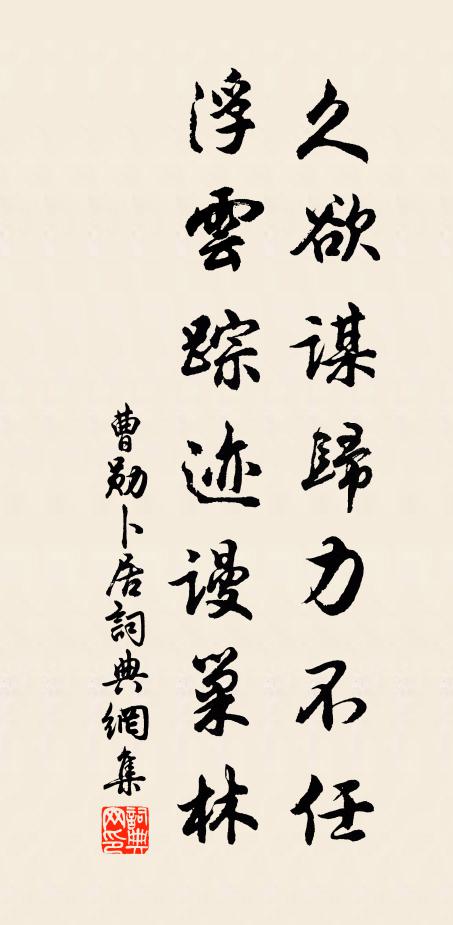 久欲謀歸力不任
浮雲踪迹謾巢林
曹勛卜居詞典網集
詞典
网印